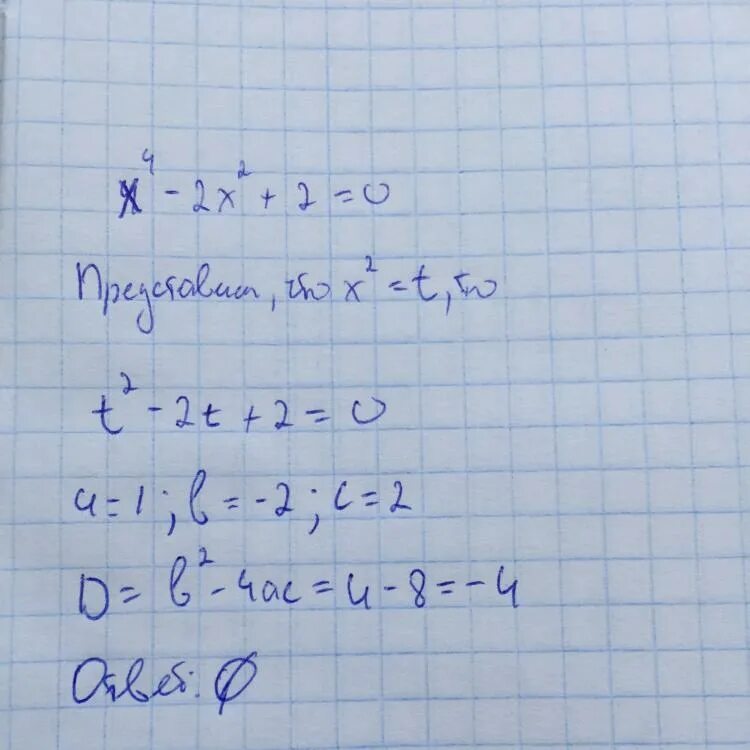 x⁴ - 2x² + 2 = 0
Представим, что x² = t, то
t² - 2t + 2 = 0
a = 1; b = -2; c = 2
D = b² - 4ac = 4 - 8 = -4
Ответ: ∅